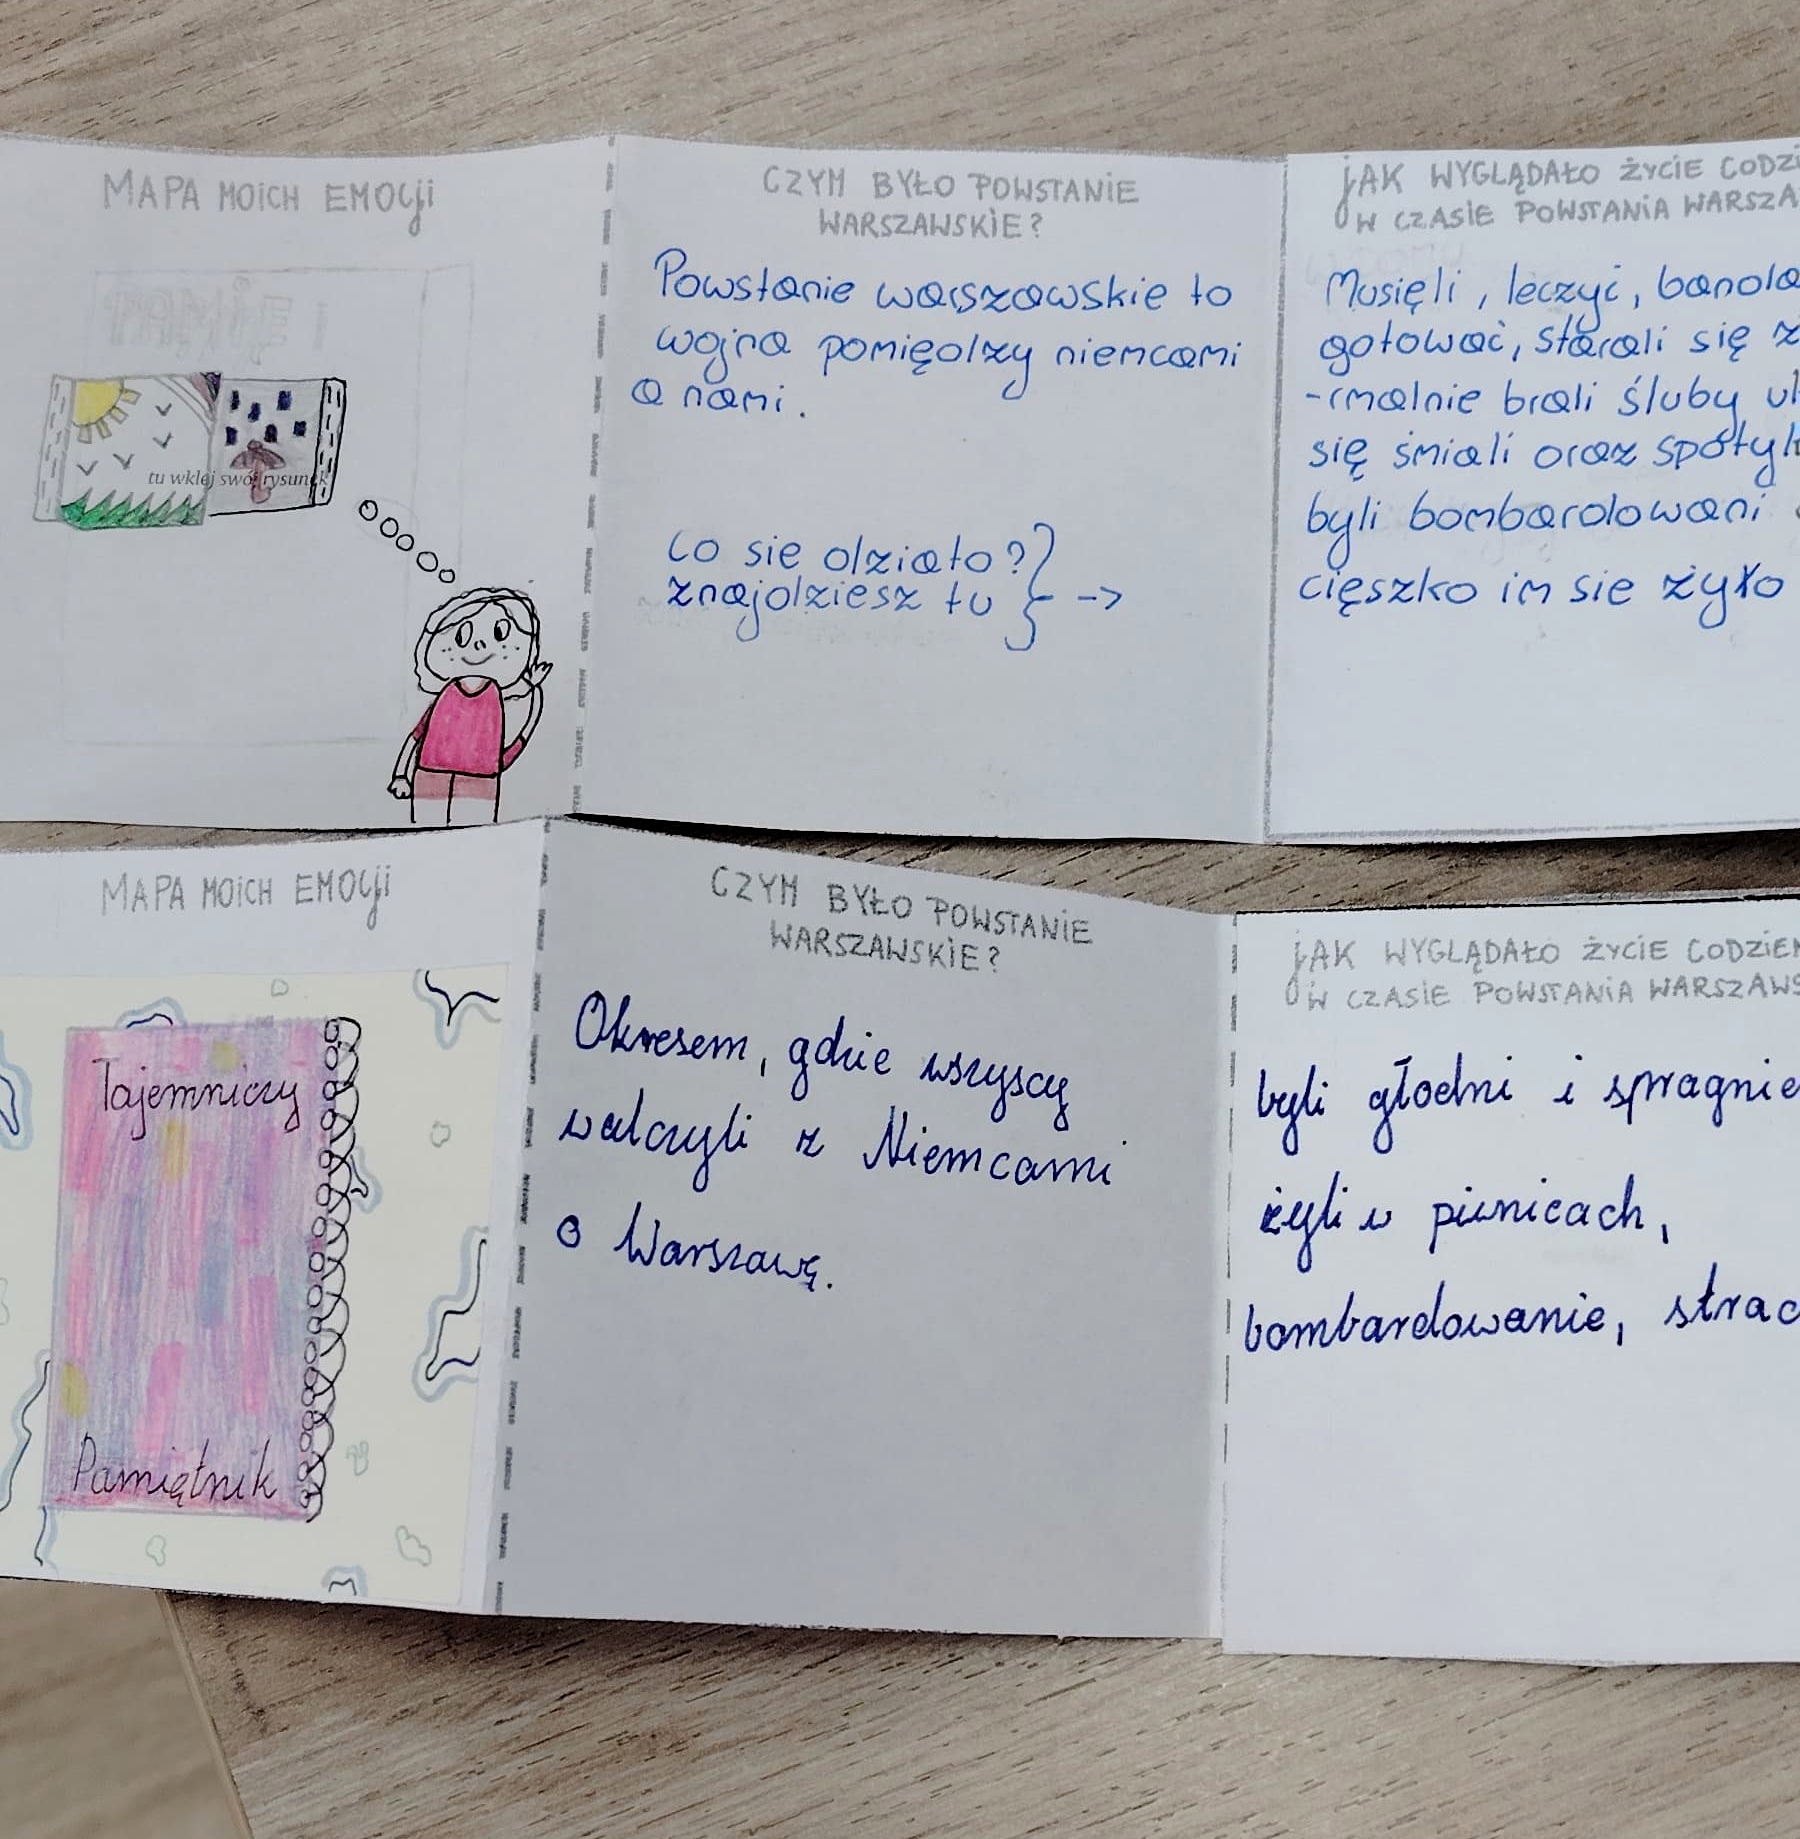 MAPA MOICH EMOCJI
tu wklej swój rysunek
CZYM BYŁO POWSTANIE
WARSZAWSKIE?
Powstanie warszawskie to
wojna pomiędzy niemcami
a nami.
co sie działo?
znajdziesz tu } ->
JAK WYGLĄDAŁO ŻYCIE CODZI
W CZASIE POWSTANIA WARSZA
Musięli, leczyć, banda
gotować, starali się z
-rmalnie brali śluby uk
się śmiali oraz spotyk
byli bombardowani
cięszko im sie żyło
MAPA MOICH EMOCJI
Tajemniczy
Pamiętnik
CZYM BYŁO POWSTANIE
WARSZAWSKIE?
Okresem, gdzie wszyscy
walczyli z Niemcami
o Warszawę.
JAK WYGLĄDAŁO ŻYCIE CODZIEN
W CZASIE POWSTANIA WARSZAWS
byli głodni i spragnie
żyli w piwnicach,
bombardowanie, strac